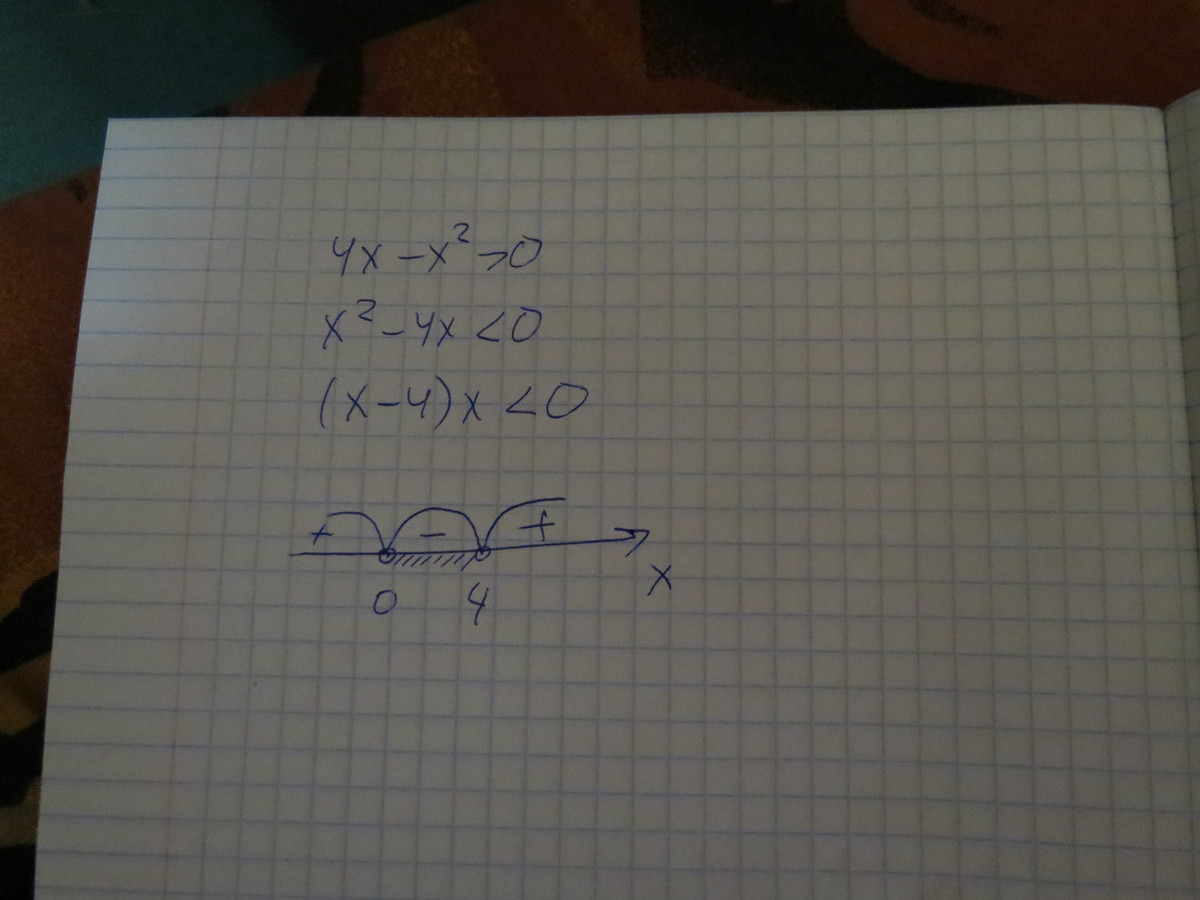 4x-x²>0
x²-4x<0
(x-4)x<0
+ - +
0 4 x